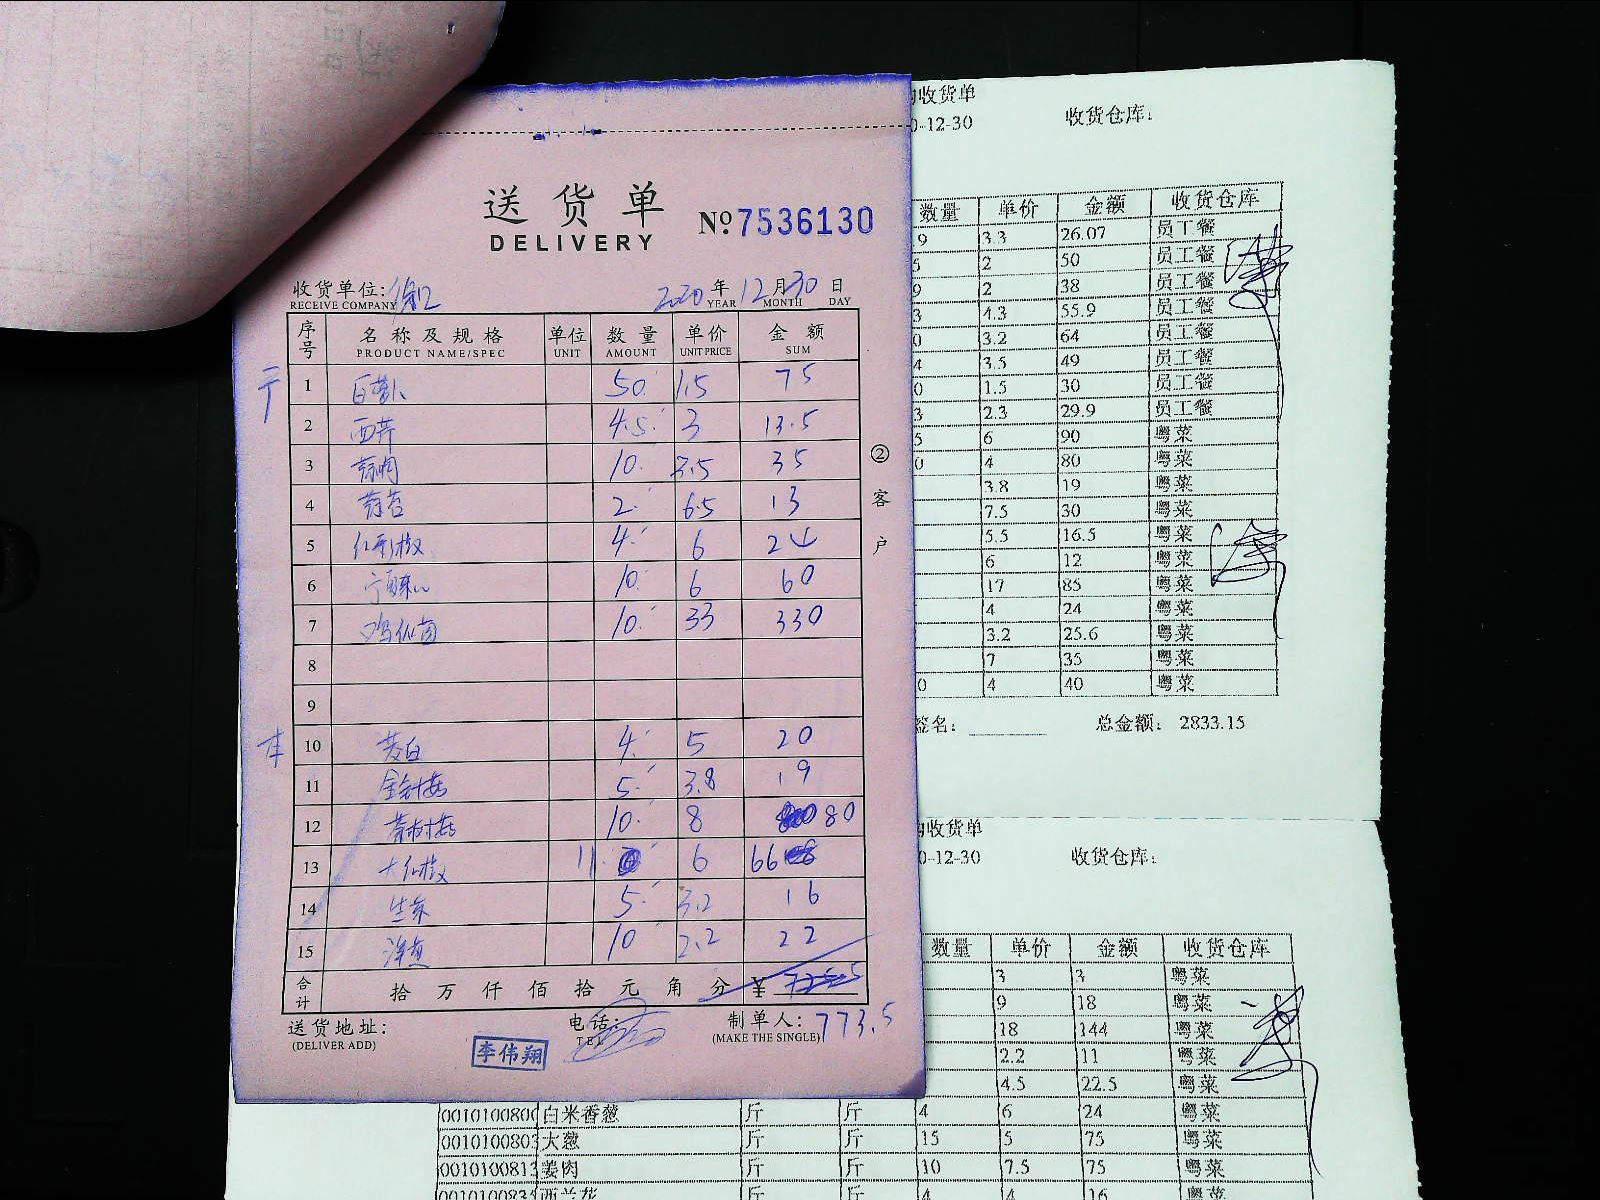 送货单
DELIVERY
№ 7536130
收货单位:
RECEIVE COMPANY
2020 年 12 月 30 日
YEAR MONTH DAY
序号 名称及规格 单位 数量 单价 金额
PRODUCT NAME/SPEC UNIT AMOUNT UNIT PRICE SUM
1 白萝卜 50 1.5 75
2 西芹 4.5 3 13.5
3 10 3.5 35
4 2 6.5 13
5 4 6 24
6 10 6 60
7 10 33 330
8
9
10 茭白 4 5 20
11 金针菇 5 3.8 19
12 10 8 80
13 11 6 66
14 生菜 5 3.2 16
15 洋葱 10 2.2 22
合计 拾 万 仟 佰 拾 元 角 分 ¥
②客户
送货地址:
(DELIVER ADD)
李伟翔
电话:
TEL
制单人: 773.5
(MAKE THE SINGLE)
收货单
-12-30 收货仓库:
数量 单价 金额 收货仓库
9 3.3 26.07 员工餐
5 2 50 员工餐
9 2 38 员工餐
3 4.3 55.9 员工餐
0 3.2 64 员工餐
4 3.5 49 员工餐
0 1.5 30 员工餐
3 2.3 29.9 员工餐
5 6 90 粤菜
0 4 80 粤菜
3.8 19 粤菜
7.5 30 粤菜
5.5 16.5 粤菜
6 12 粤菜
17 85 粤菜
4 24 粤菜
3.2 25.6 粤菜
7 35 粤菜
0 4 40 粤菜
签名: 总金额: 2833.15
收货单
0-12-30 收货仓库:
数量 单价 金额 收货仓库
3 3 粤菜
9 18 粤菜
18 144 粤菜
2.2 11 粤菜
4.5 22.5 粤菜
0010100800 白米香葱 斤 斤 4 6 24 粤菜
0010100803 大葱 斤 斤 15 5 75 粤菜
0010100813 姜肉 斤 斤 10 7.5 75 粤菜
001010083 西兰花 斤 斤 4 4 16 粤菜